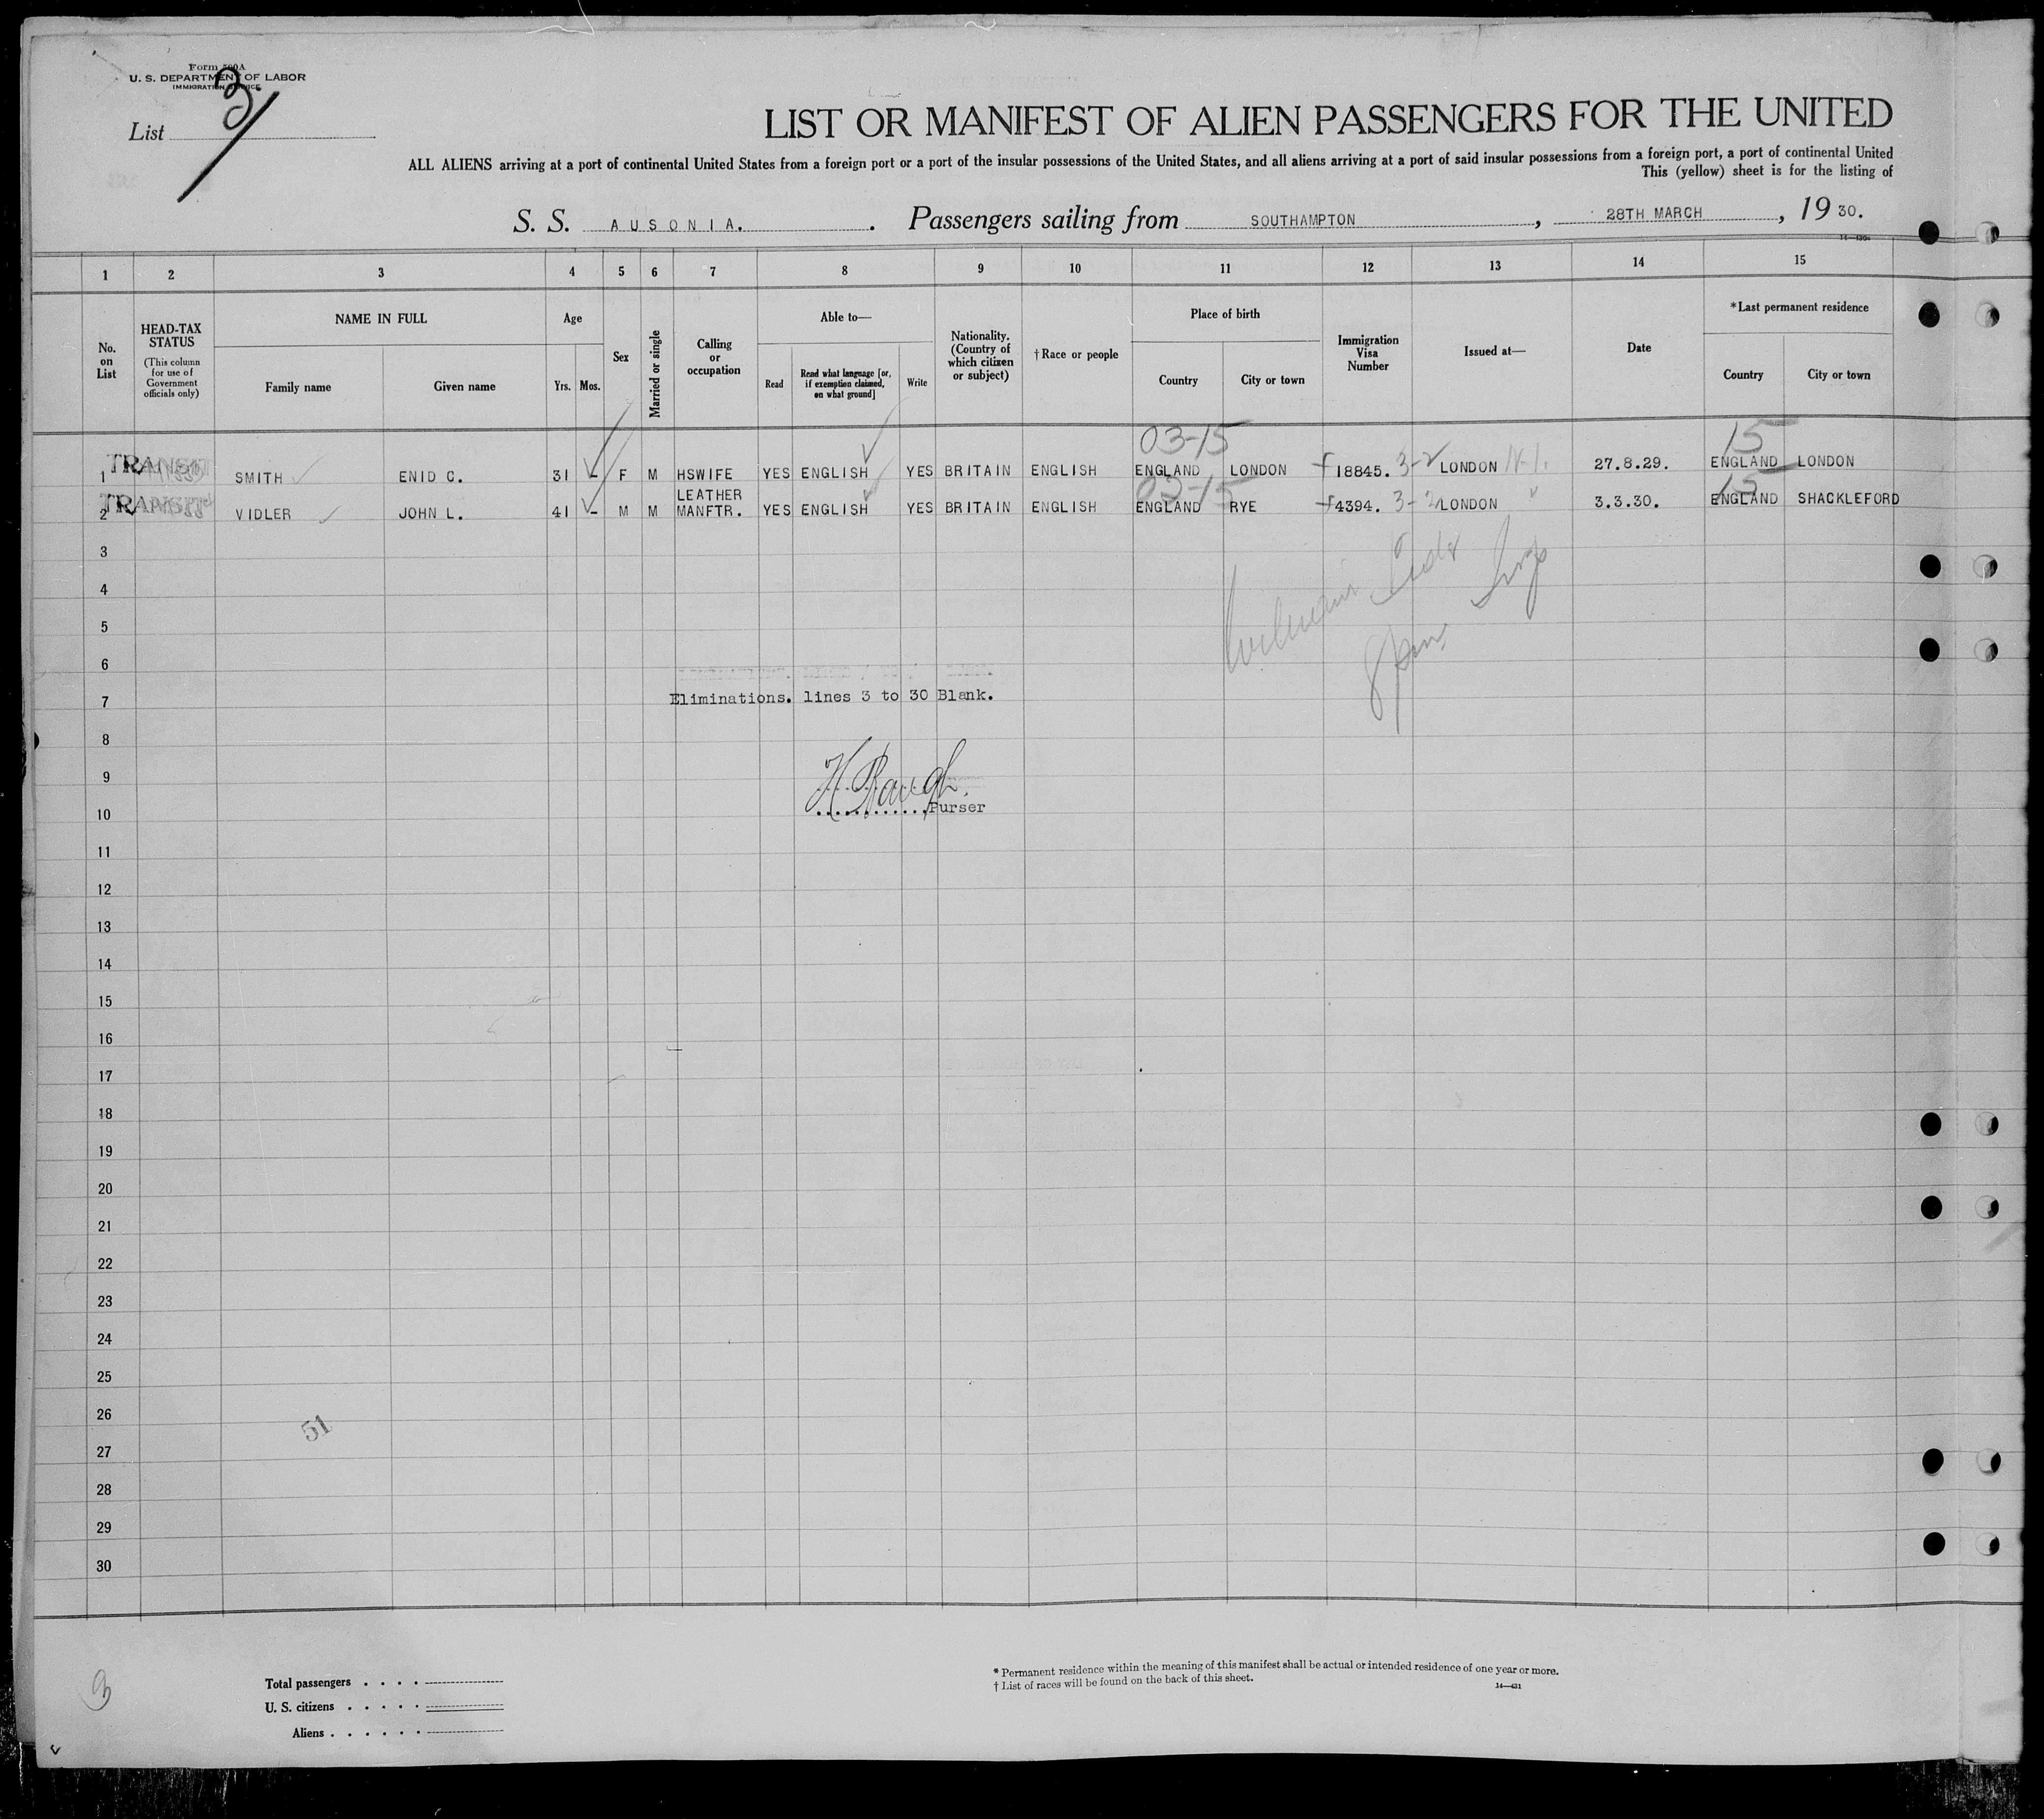 Form 500A
U. S. DEPARTMENT OF LABOR
IMMIGRATION SERVICE
List 3
LIST OR MANIFEST OF ALIEN PASSENGERS FOR THE UNITED
ALL ALIENS arriving at a port of continental United States from a foreign port or a port of the insular possessions of the United States, and all aliens arriving at a port of said insular possessions from a foreign port, a port of continental United
This (yellow) sheet is for the listing of
S. S. AUSONIA. . Passengers sailing from SOUTHAMPTON , 28TH MARCH , 19 30.
1 2 3 4 5 6 7 8 9 10 11 12 13 14 15
No. on List
HEAD-TAX STATUS
(This column for use of Government officials only)
NAME IN FULL
Family name Given name
Age
Yrs. Mos.
Sex
Married or single
Calling or occupation
Able to—
Read Read what language [or, if exemption claimed, on what ground] Write
Nationality. (Country of which citizen or subject)
†Race or people
Place of birth
Country City or town
Immigration Visa Number
Issued at—
Date
*Last permanent residence
Country City or town
03-15 15
1 TRANSIT SMITH ENID C. 31 - F M HSWIFE YES ENGLISH YES BRITAIN ENGLISH ENGLAND LONDON 18845. 3-2 LONDON 27.8.29. ENGLAND LONDON
03-15 15
2 TRANSIT VIDLER JOHN L. 41 - M M LEATHER MANFTR. YES ENGLISH YES BRITAIN ENGLISH ENGLAND RYE 4394. 3-2 LONDON 3.3.30. ENGLAND SHACKLEFORD
3
4
5
6
7 Eliminations. lines 3 to 30 Blank.
8
9
10 Purser
11
12
13
14
15
16
17
18
19
20
21
22
23
24
25
26
51
27
28
29
30
Total passengers . . . .
U. S. citizens . . . . .
Aliens . . . . . .
* Permanent residence within the meaning of this manifest shall be actual or intended residence of one year or more.
† List of races will be found on the back of this sheet.
14—431